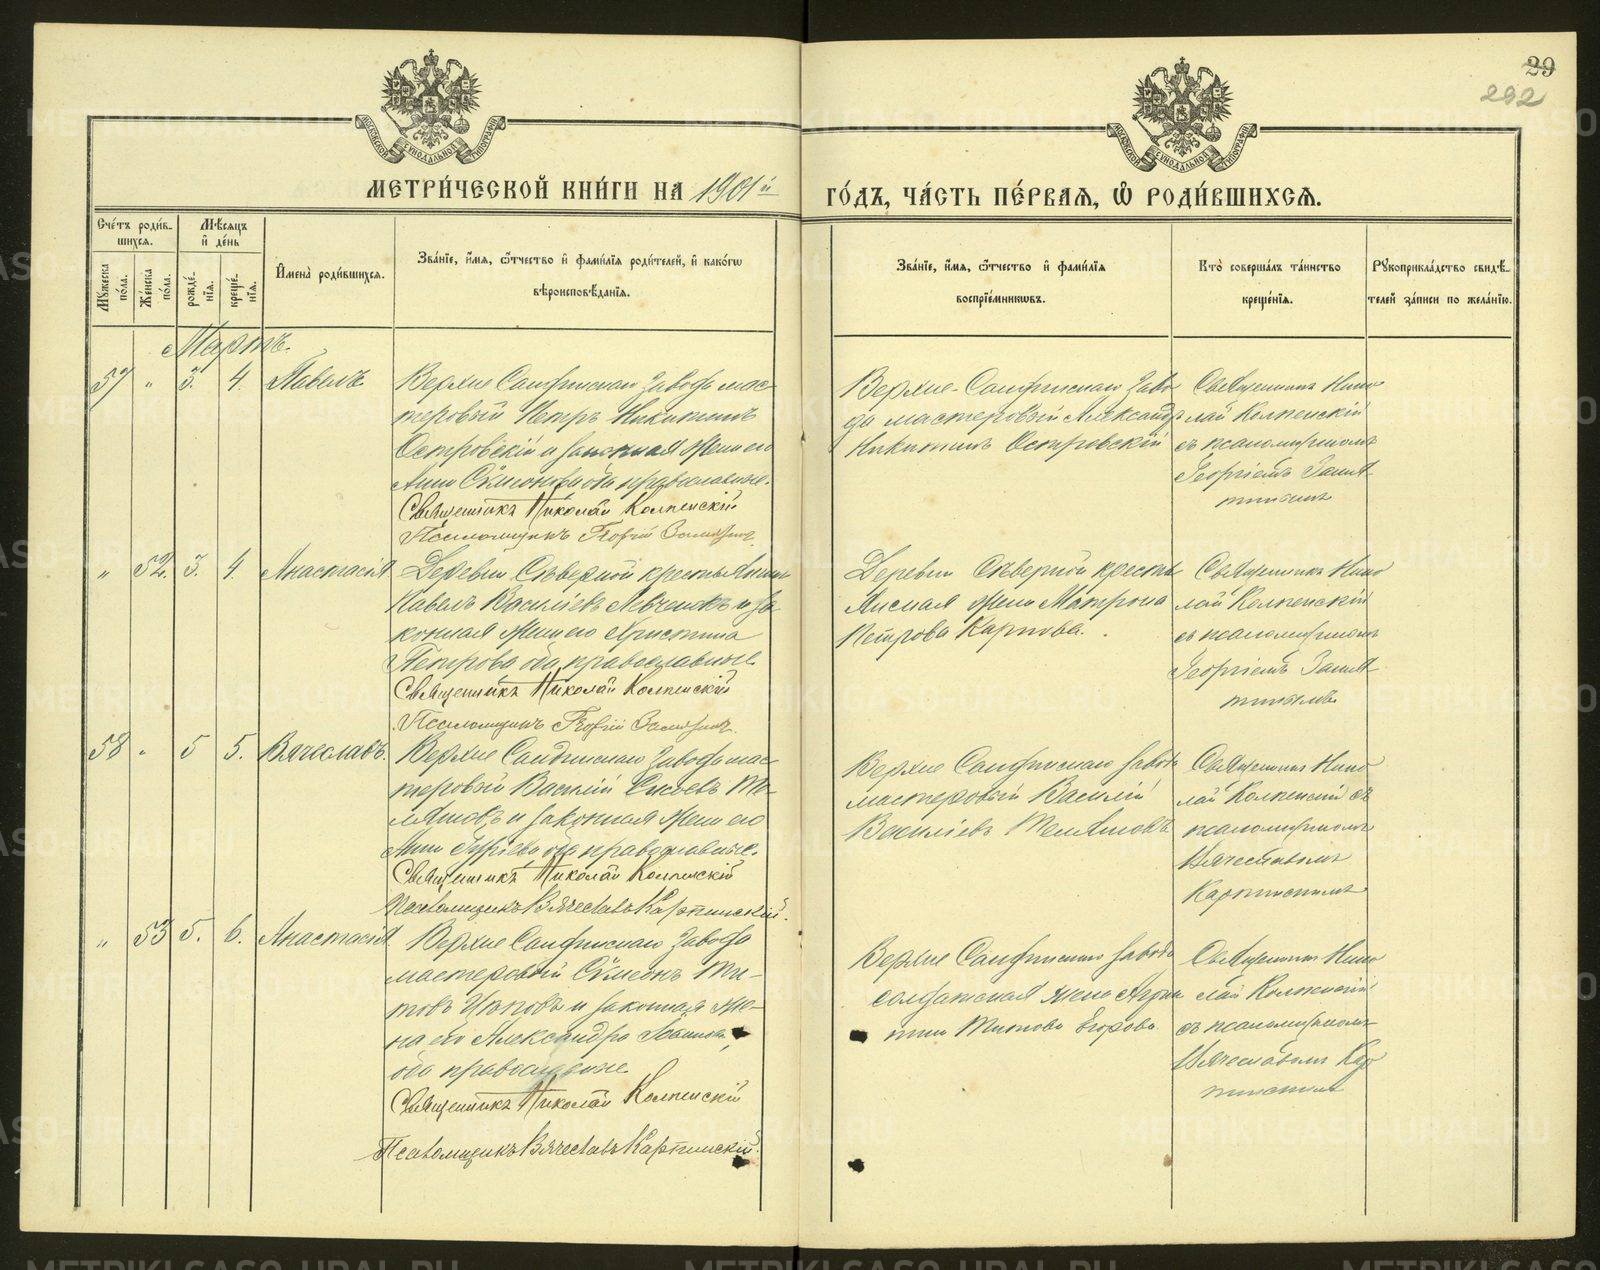 29
292
МОСКОВСКОЙ СѴНОДАЛЬНОЙ ТИПОГРАФІИ
МОСКОВСКОЙ СѴНОДАЛЬНОЙ ТИПОГРАФІИ
МЕТРИ́ЧЕСКОЙ КНИ́ГИ НА 1901й ГО́ДЪ, ЧА́СТЬ ПЕ́РВАЯ, Ѽ РОДИ́ВШИХСЯ.
Сче́тъ роди́в-
шихся.
Мѣ́сяцъ
и҆ де́нь
Мꙋ́жеска
по́ла.
Же́нска
по́ла.
рожде́-
нїя.
креще́-
нїя.
И҆мена̀ роди́вшихся.
Зва́нїе, и҆́мя, ѻ҆́тчество и҆ фами́лїя роди́телей, и҆ како́гѡ
вѣроисповѣ́данїя.
Зва́нїе, и҆́мя, ѻ҆́тчество и҆ фами́лїя
воспрїе́мникѡвъ.
Кто̀ соверша́лъ та́инство
креще́нїя.
Рꙋкоприкла́дство свидѣ́-
телей за́писи по жела́нїю.
Мартъ.
57 " 3. 4. Павелъ
Верхне Саидинскаго Завода мас-
теровый Петръ Никитинъ
Островскій и законная жена его
Анна Сѵмеонова оба православные.
Священникъ Николай Колпенскій
Псаломщикъ Георгій
Верхне-Саидинскаго Заво
да мастеровый Александр
Никитинъ Островскій
Священникъ Нико
лай Колпенскій
съ псаломщикомъ
Георгіемъ
" 52. 3. 4. Анастасія
Деревни Сѣверной крестьянинъ
Павелъ Васильевъ Левченокъ и за
конная жена его Христина
Петрова оба православные.
Священникъ Николай Колпенскій
Псаломщикъ Георгій
Деревни Сѣверной кресть
янская жена Матрона
Петрова Карпова.
Священникъ Нико
лай Колпенскій
съ псаломщикомъ
Георгіемъ
58 " 5 5. Вячеславъ.
Верхне Саидинскаго Завода мас
теровый Василій Сысоевъ Те-
ляшовъ и законная жена его
Анна Гурьева оба православные.
Священникъ Николай Колпенскій
Псаломщикъ Вячеславъ Карпинскій.
Верхне Саидинскаго завода
мастеровый Василій
Васильевъ Теляшовъ
Священникъ Нико
лай Колпенскій съ
псаломщикомъ
Вячеславомъ
Карпинскимъ
" 53 5. 6. Анастасія
Верхне Саидинскаго Завода
мастеровый Сѵмеонъ Ти-
товъ и законная же-
на его Александра Иванова,
оба православные
Священникъ Николай Колпенскій
Псаломщикъ Вячеславъ Карпинскій.
Верхне Саидинскаго завода
солдатская жена
Титова Егорова
Священникъ Нико
лай Колпенскій
съ псаломщикомъ
Вячеславомъ Кар
пинскимъ
METRIKI.GASO-URAL.RU